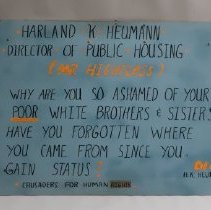 HARLAND K HEUMANN
DIRECTOR OF PUBLIC HOUSING
WHY ARE YOU SO ASHAMED OF YOUR
POOR WHITE BROTHERS & SISTERS
HAVE YOU FORGOTTEN WHERE
YOU CAME FROM SINCE YOU
GAIN STATUS ?
CRUSADERS FOR HUMAN RIGHTS